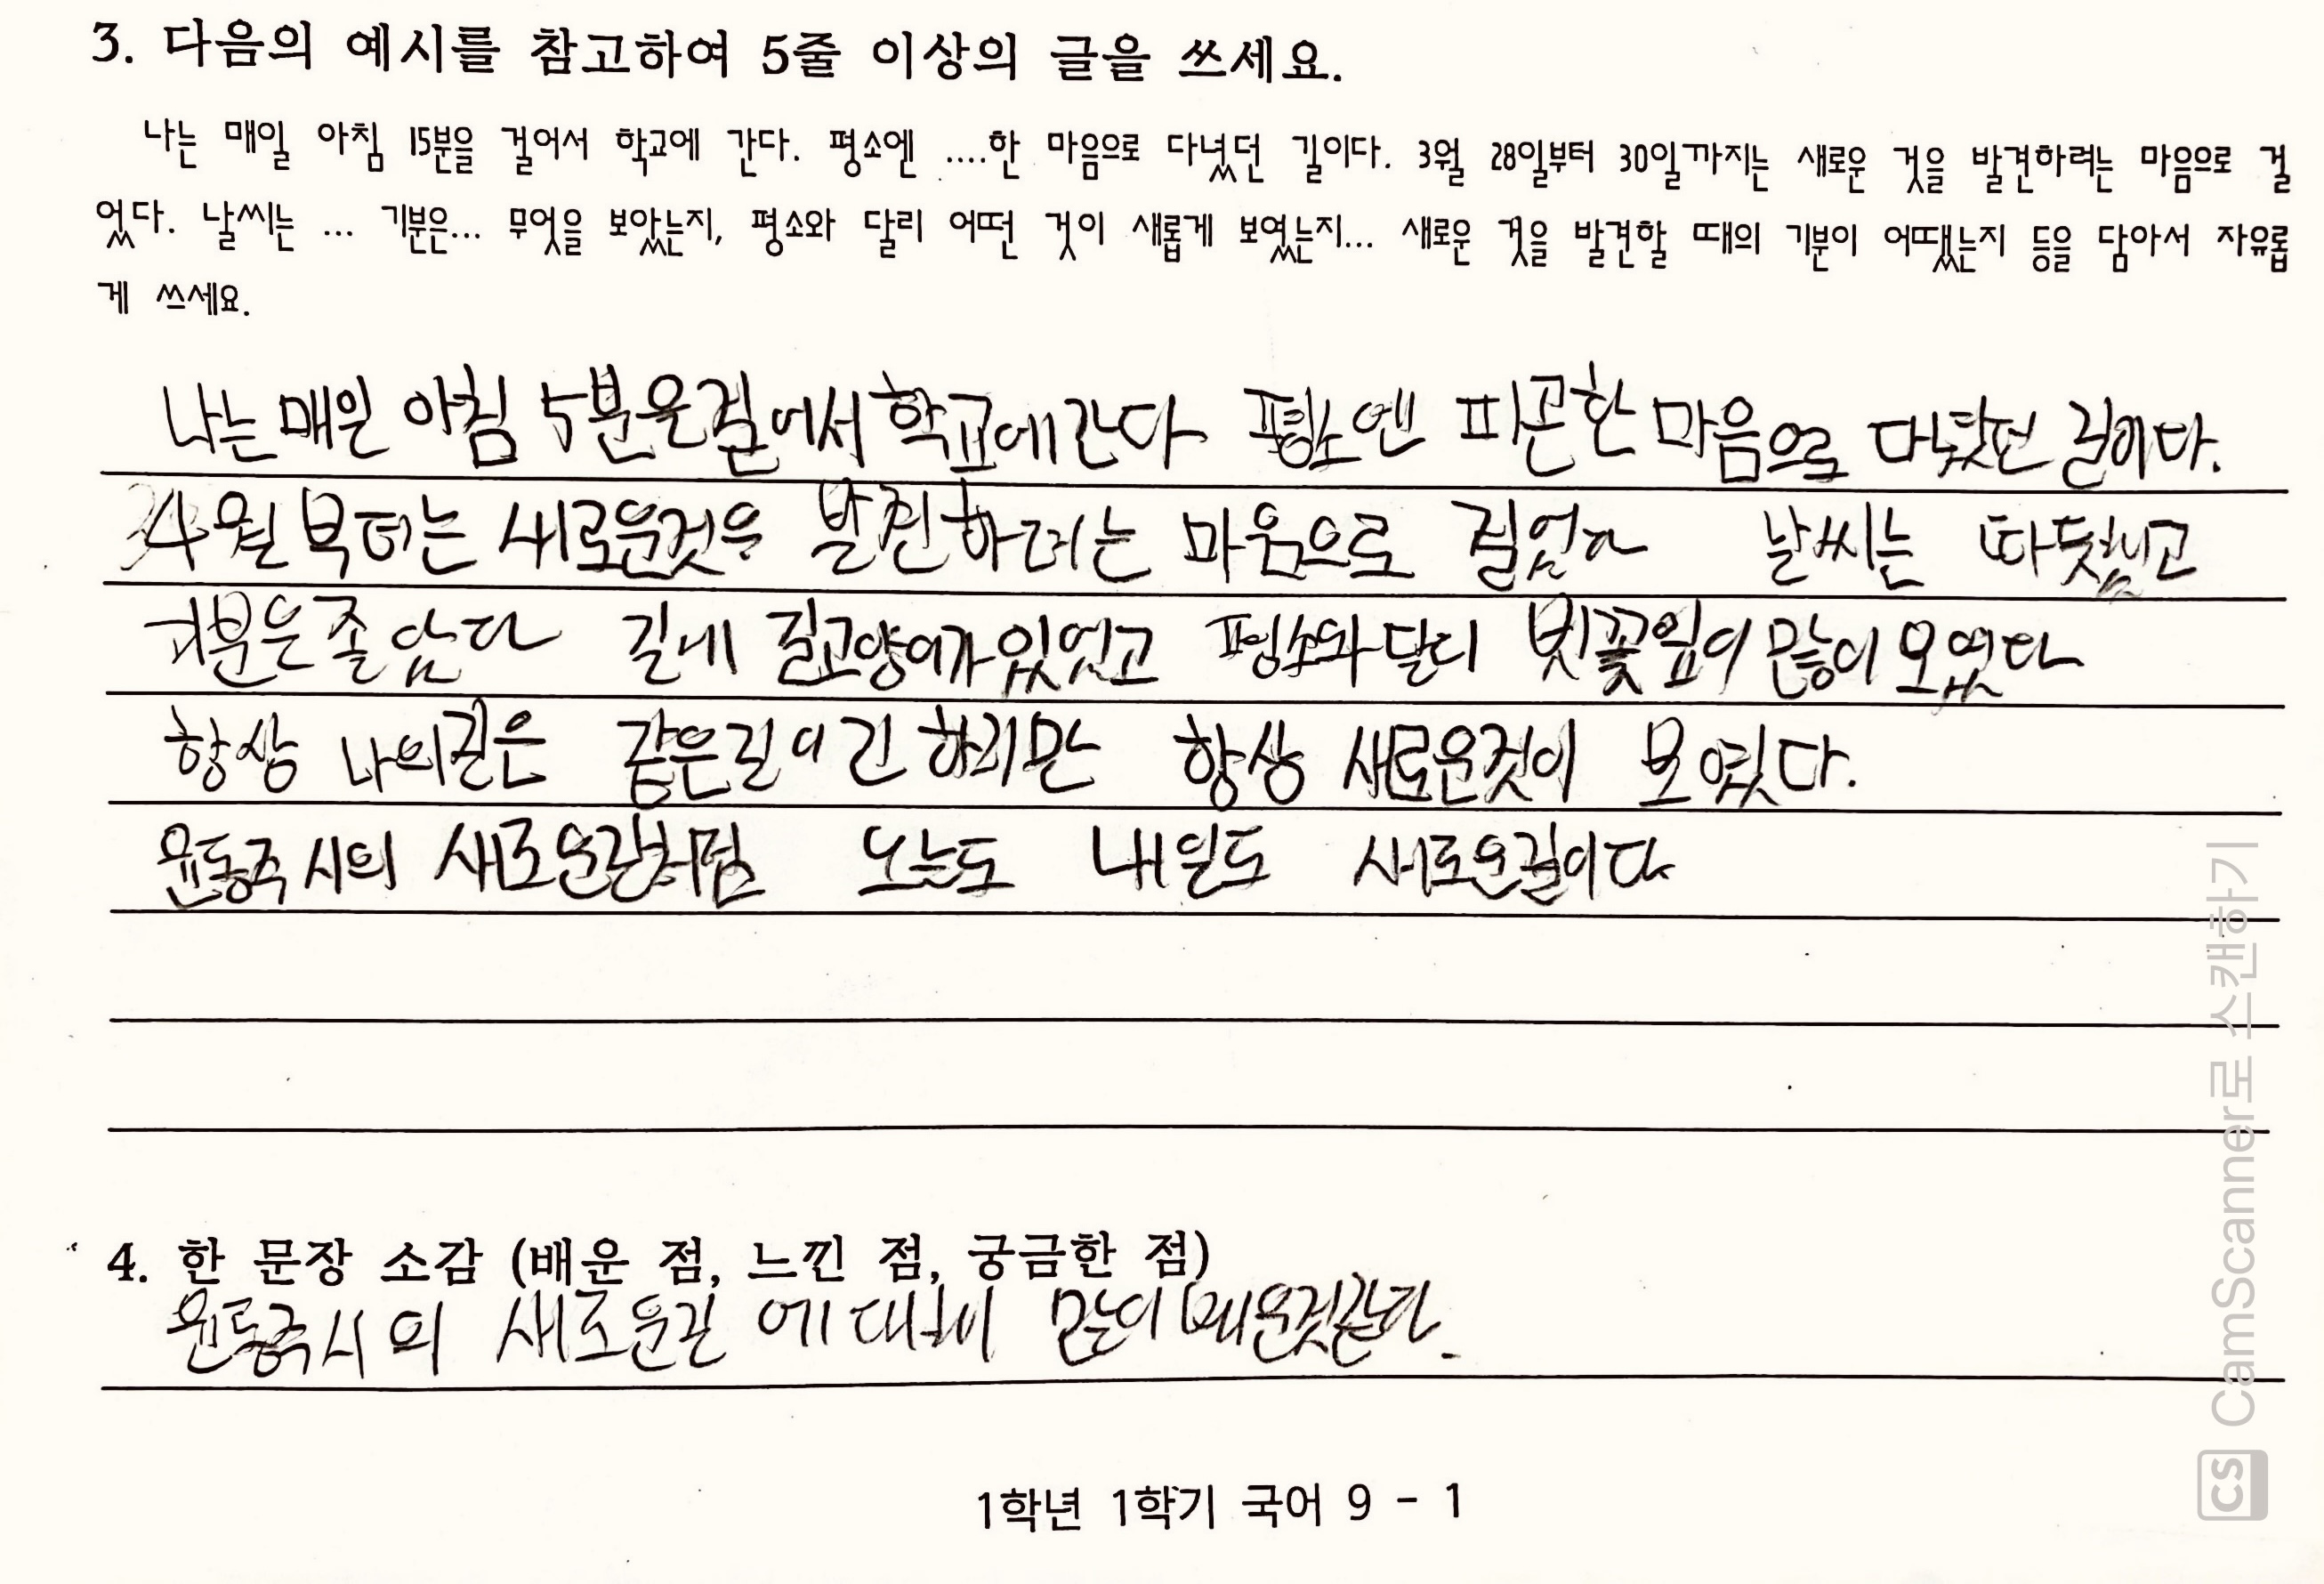 3. 다음의 예시를 참고하여 5줄 이상의 글을 쓰세요.
나는 매일 아침 15분을 걸어서 학교에 간다. 평소엔 ....한 마음으로 다녔던 길이다. 3월 28일부터 30일까지는 새로운 것을 발견하려는 마음으로 걸
었다. 날씨는 ... 기분은... 무엇을 보았는지, 평소와 달리 어떤 것이 새롭게 보였는지... 새로운 것을 발견할 때의 기분이 어땠는지 등을 담아서 자유롭
게 쓰세요.
나는 매일 아침 5분을걸어서 학교에간다 평소엔 피곤한 마음으로 다녔던 길이다.
4월부터는 새로운것을 발견하려는 마음으로 걸었다 날씨는 따듯했고
기분은좋았다 길에 길고양이가있었고 평소와달리 벗꽃잎이많이보였다
항상 나의길은 같은길이긴 하지만 항상 새로운것이 보였다.
윤동주시의 새로운길처럼 오늘도 내일도 새로운길이다
4. 한 문장 소감 (배운 점, 느낀 점, 궁금한 점)
윤동주시의 새로운길 에대해 많이배운것같다.
1학년 1학기 국어 9 - 1
CS CamScanner로 스캔하기